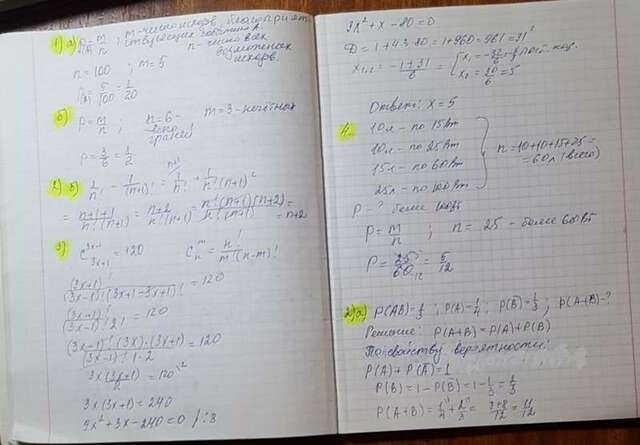 1) а) P(A) = m/n ; m - число исходов, благоприят-
ствующих событию.
n - число всех
возможных
исходов.
n = 100 ; m = 5
P(A) = 5/100 = 1/20
б) P = m/n ; n = 6 - всего граней ; m = 3 - нечётных
P = 3/6 = 1/2
= (n+1+1)/(n!(n+1)) = (n+2)/(n!(n+1)) =
3) C 3x-1 3x+1 = 120 C m n = n!/(m!(n-m)!)
(3x+1)!/((3x-1)!(3x+1-3x+1)!) = 120
(3x+1)!/((3x-1)! 2!) = 120
((3x-1)! (3x)·(3x+1))/((3x-1)! 1·2) = 120
3x(3x+1)/2 = 120 \2
3x(3x+1) = 240
9x² + 3x - 240 = 0 /:3
3x² + x - 80 = 0
D = 1 + 4·3·80 = 1 + 960 = 961 = 31²
x₂ = 30/6 = 5
Ответ: x = 5
4.
10л - по 15Вт
10л - по 25Вт
15л - по 60Вт
25л - по 100Вт
n = 10+10+15+25 =
= 60л (всего)
P - ? более 60Вт
P = m/n ; n = 25 - более 60Вт
P = 25/60 12 = 5/12
2) а) P(AB) = 1/3 ; P(A) = 1/4 ; P(B) = 1/3 ; P(A+B) - ?
Решение: P(A+B) = P(A) + P(B)
По свойству вероятности:
P(A) + P(A) = 1
P(B) = 1 - P(B) = 1 - 1/3 = 2/3
P(A+B) = 1/4 + 2/3 = (3+8)/12 = 11/12